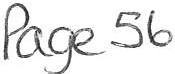 Page 56